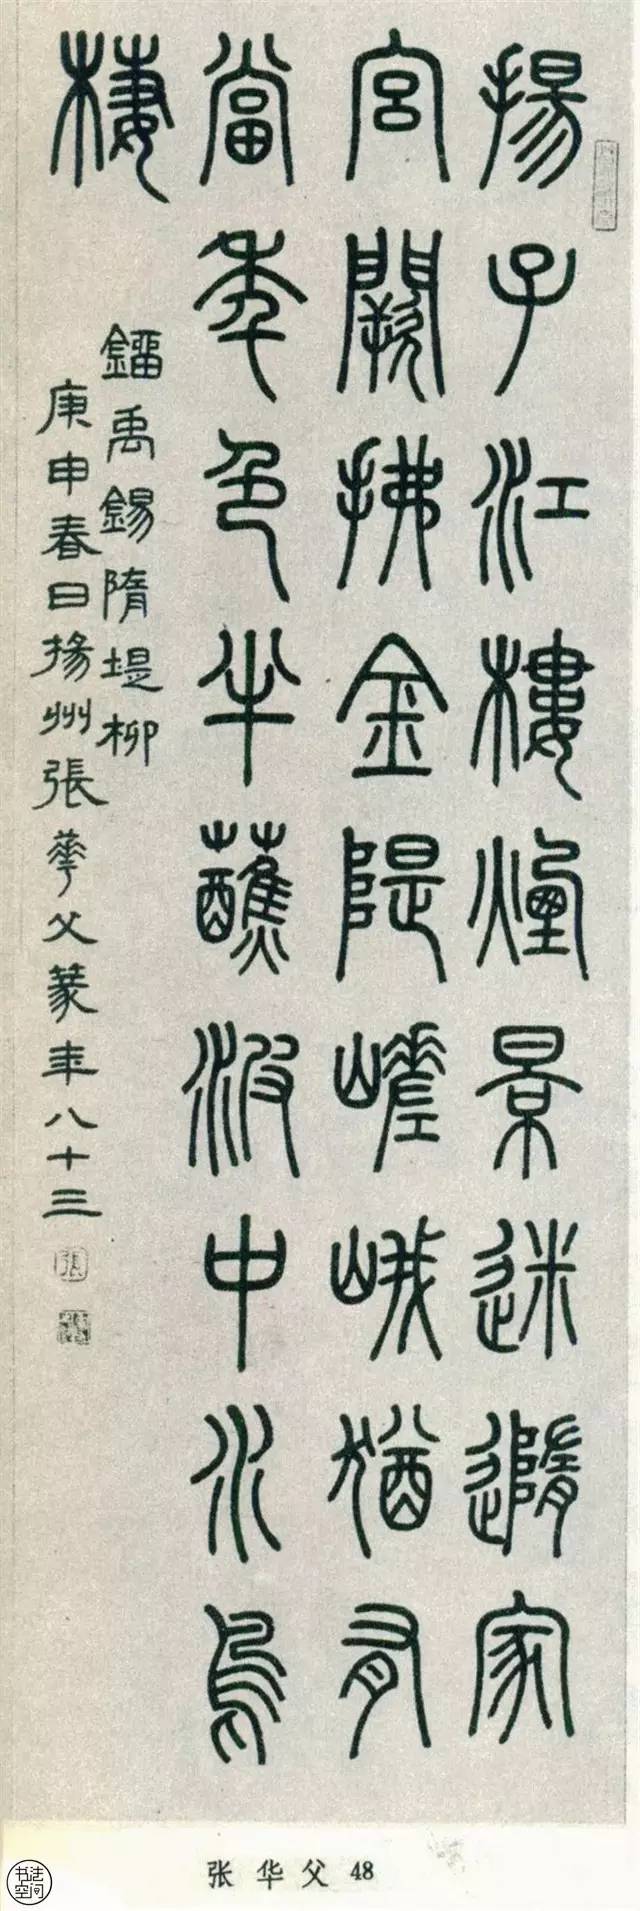 揚子江樓煙景迷隨家
宮闕拂金隄嵯峨猶有
當年色半蘸波中水鳥
棲
鎦禹錫隋堤柳
庚申春日揚州張華父篆年八十三
張
张华父 48
书法空间